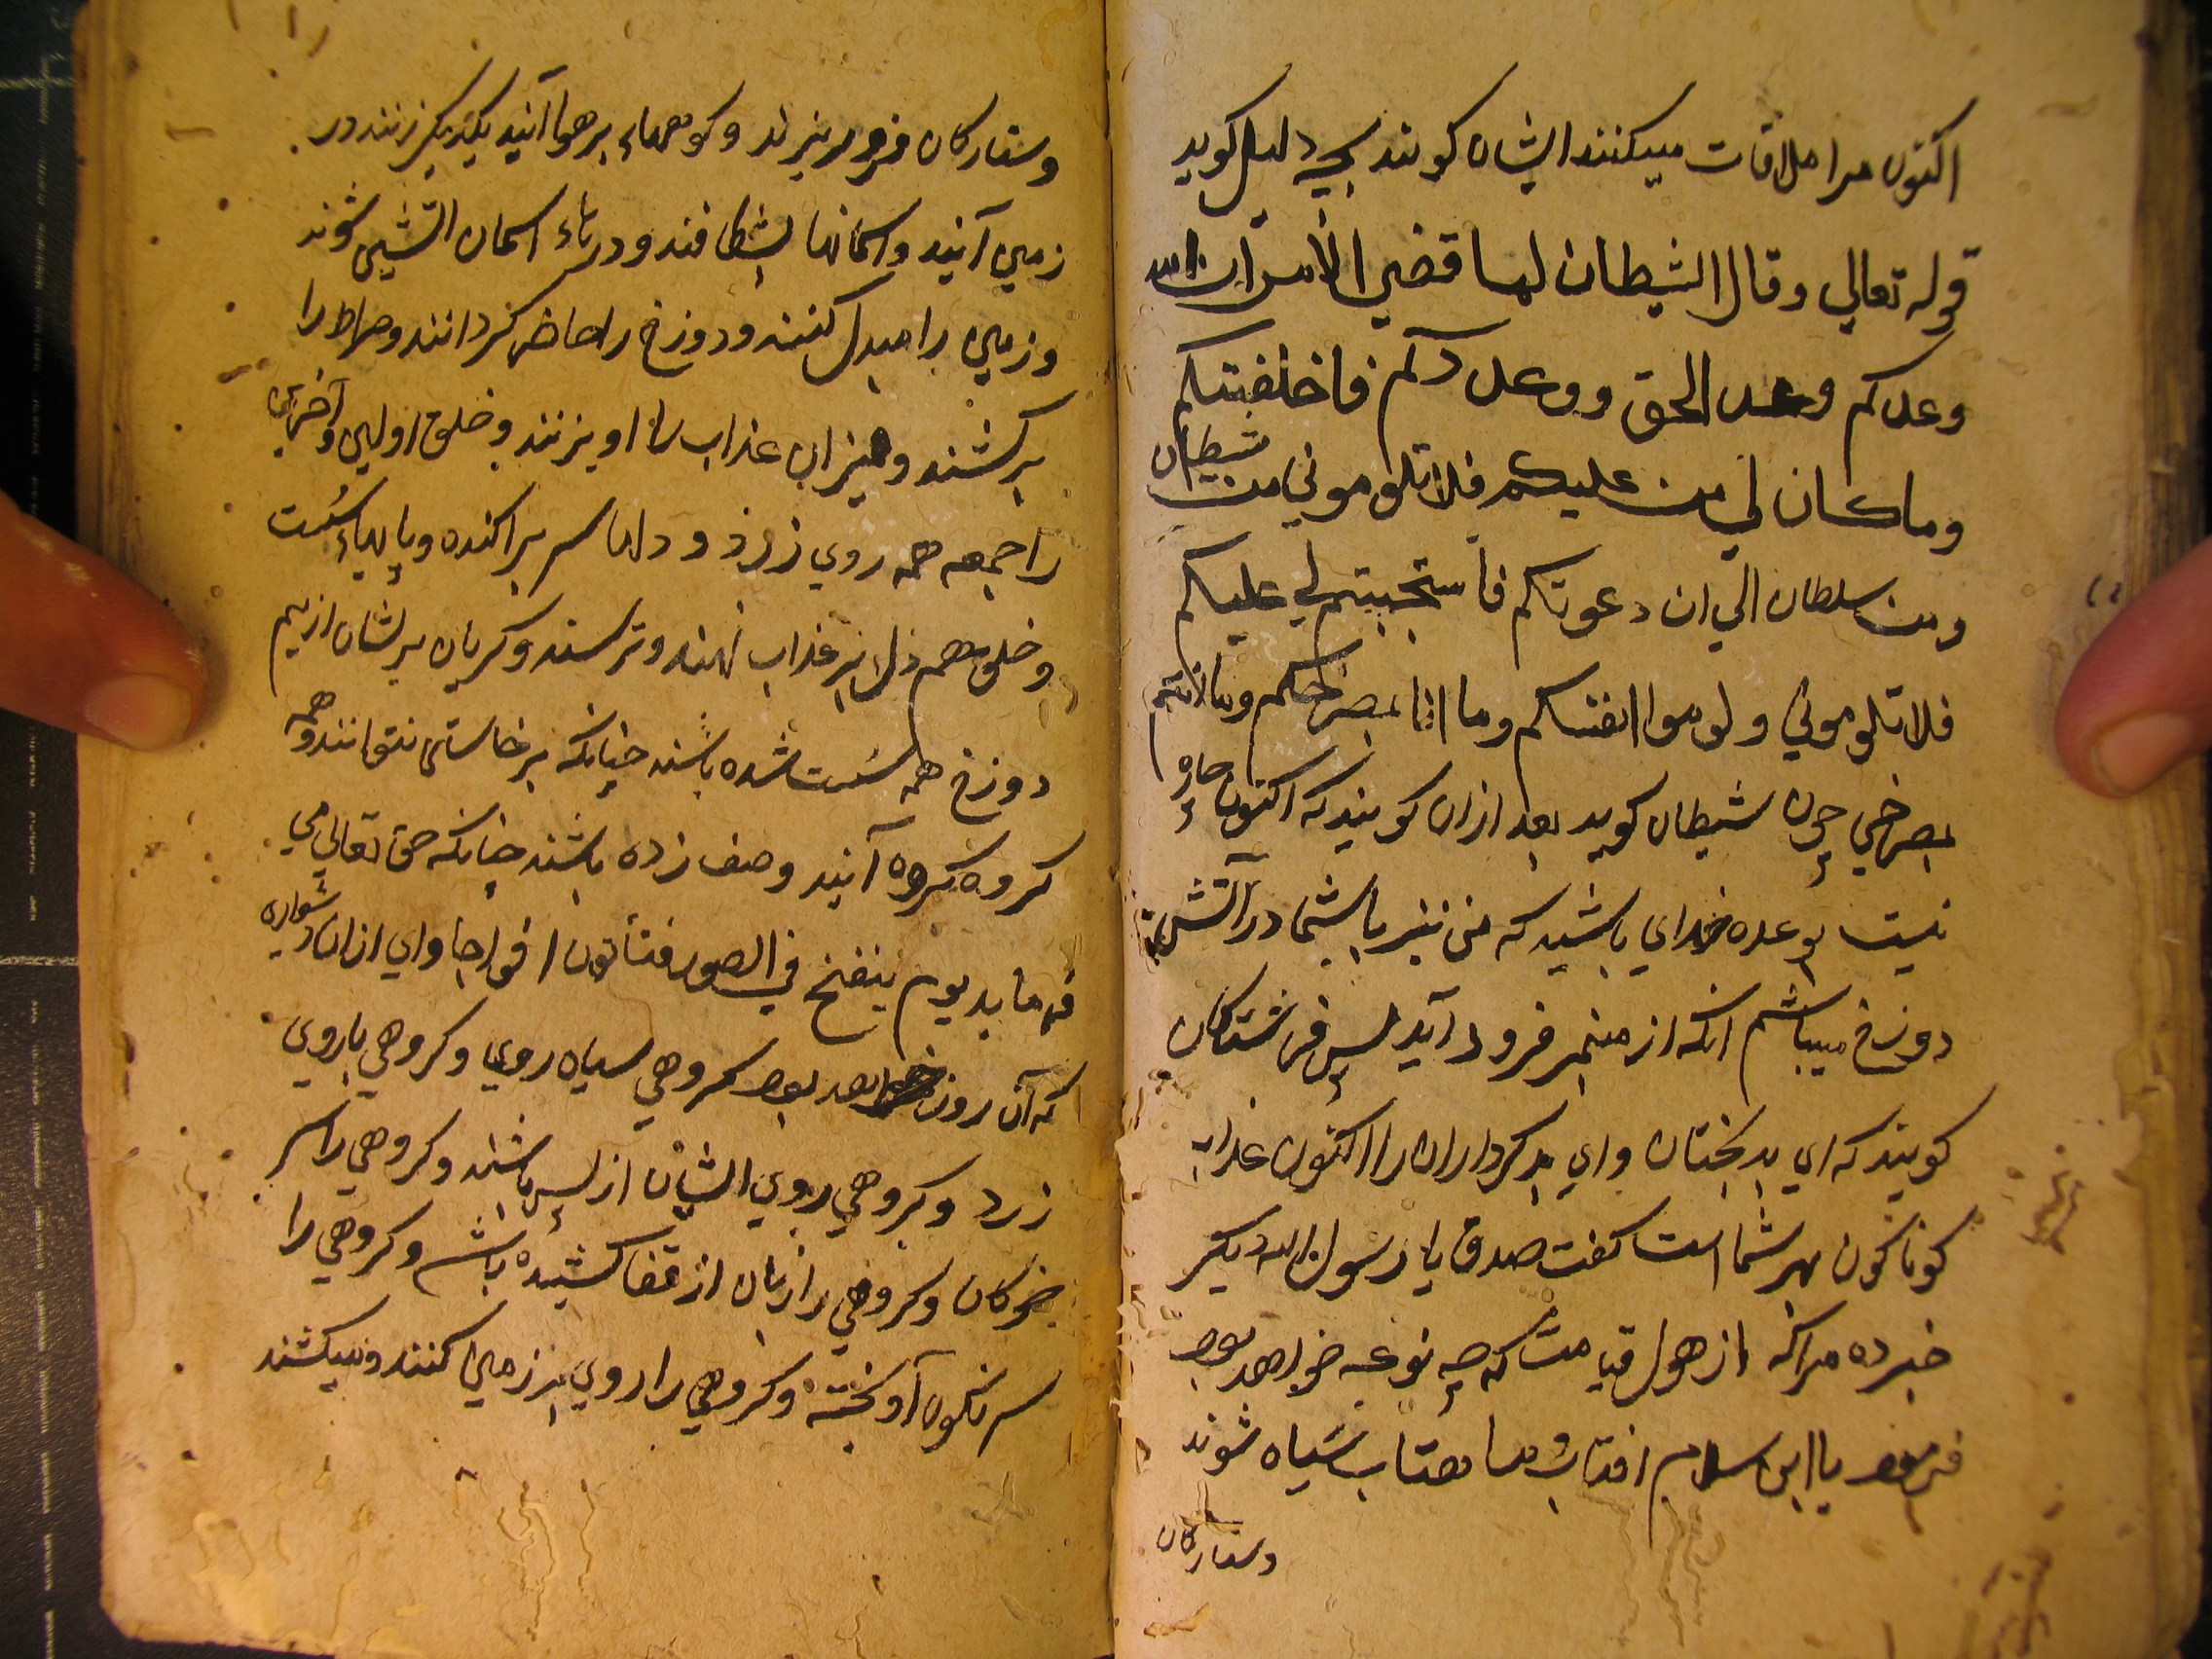 اکنون مرا ملاقات میکنند ایشان کویند بچه دلیل کوید
قوله تعالي وقال الشیطان لما قضي الأمر ان الله
وعدکم وعد الحق ووعدکم فاخلفتکم
وما کان لي من علیکم فلا تلوموني من شیطان
ومن سلطان الي ان دعوتکم فاستجبتم لي علیکم
فلا تلوموني ولوموا انفسکم وما انا بمصرخکم وما انتم
بمصرخي چون شیطان کوید بعد ازان کویند که اکنون چاره
نیست بوعده خدای باشید که من نیز باشما در آتش
دوزخ میباشم انکه از منبر فرود آید پس فرشتکان
کویند که ای بدبختان وای بدکرداران را اکنون عذاب
کوناکون بهر شما است کفت صدق یا رسول الله دیکر
خبر ده مرا که از هول قیامت که چه نوعه خواهد بود
فرمود یا ابن سلام افتاب و ماهتاب سیاه شوند
وستارکان
وستارکان فرو ریزند و کوهها بر هوا آیند یکدیکر زنند در
زمین آیند واسمانها بشکافند و دریاء اسمان اتشین شوند
وزمین را مبدل کنند ودوزخ را حاضر کردانند وصراط را
برکشند ومیزان عذاب را اویزند وخلق اولین وآخرین
را جمعه همه روي زرد و دلها سر براکنده وپایهاء سست
وخلق همه دل بر عذاب نهند وترسند وکریان بریشان از بیم
دوزخ همه سست شده باشند چنانکه برخاستن نتوانند وهمه
کروه کروه آیند وصف زده باشند چنانکه حق تعالي مي
فرماید یوم ینفخ في الصور فتأتون افواجا واي ازان دشواره
که آن روز خواهد بود کروهي سیاه روي وکروهي باروي
زرد وکروهي روي ایشان از پس باشند وکروهي را سر
خوکان وکروهي را زبان از قفا کشیده باشد وکروهي را
سر نکون آویخته وکروهي را روي بر زمین کنند ومیکشند